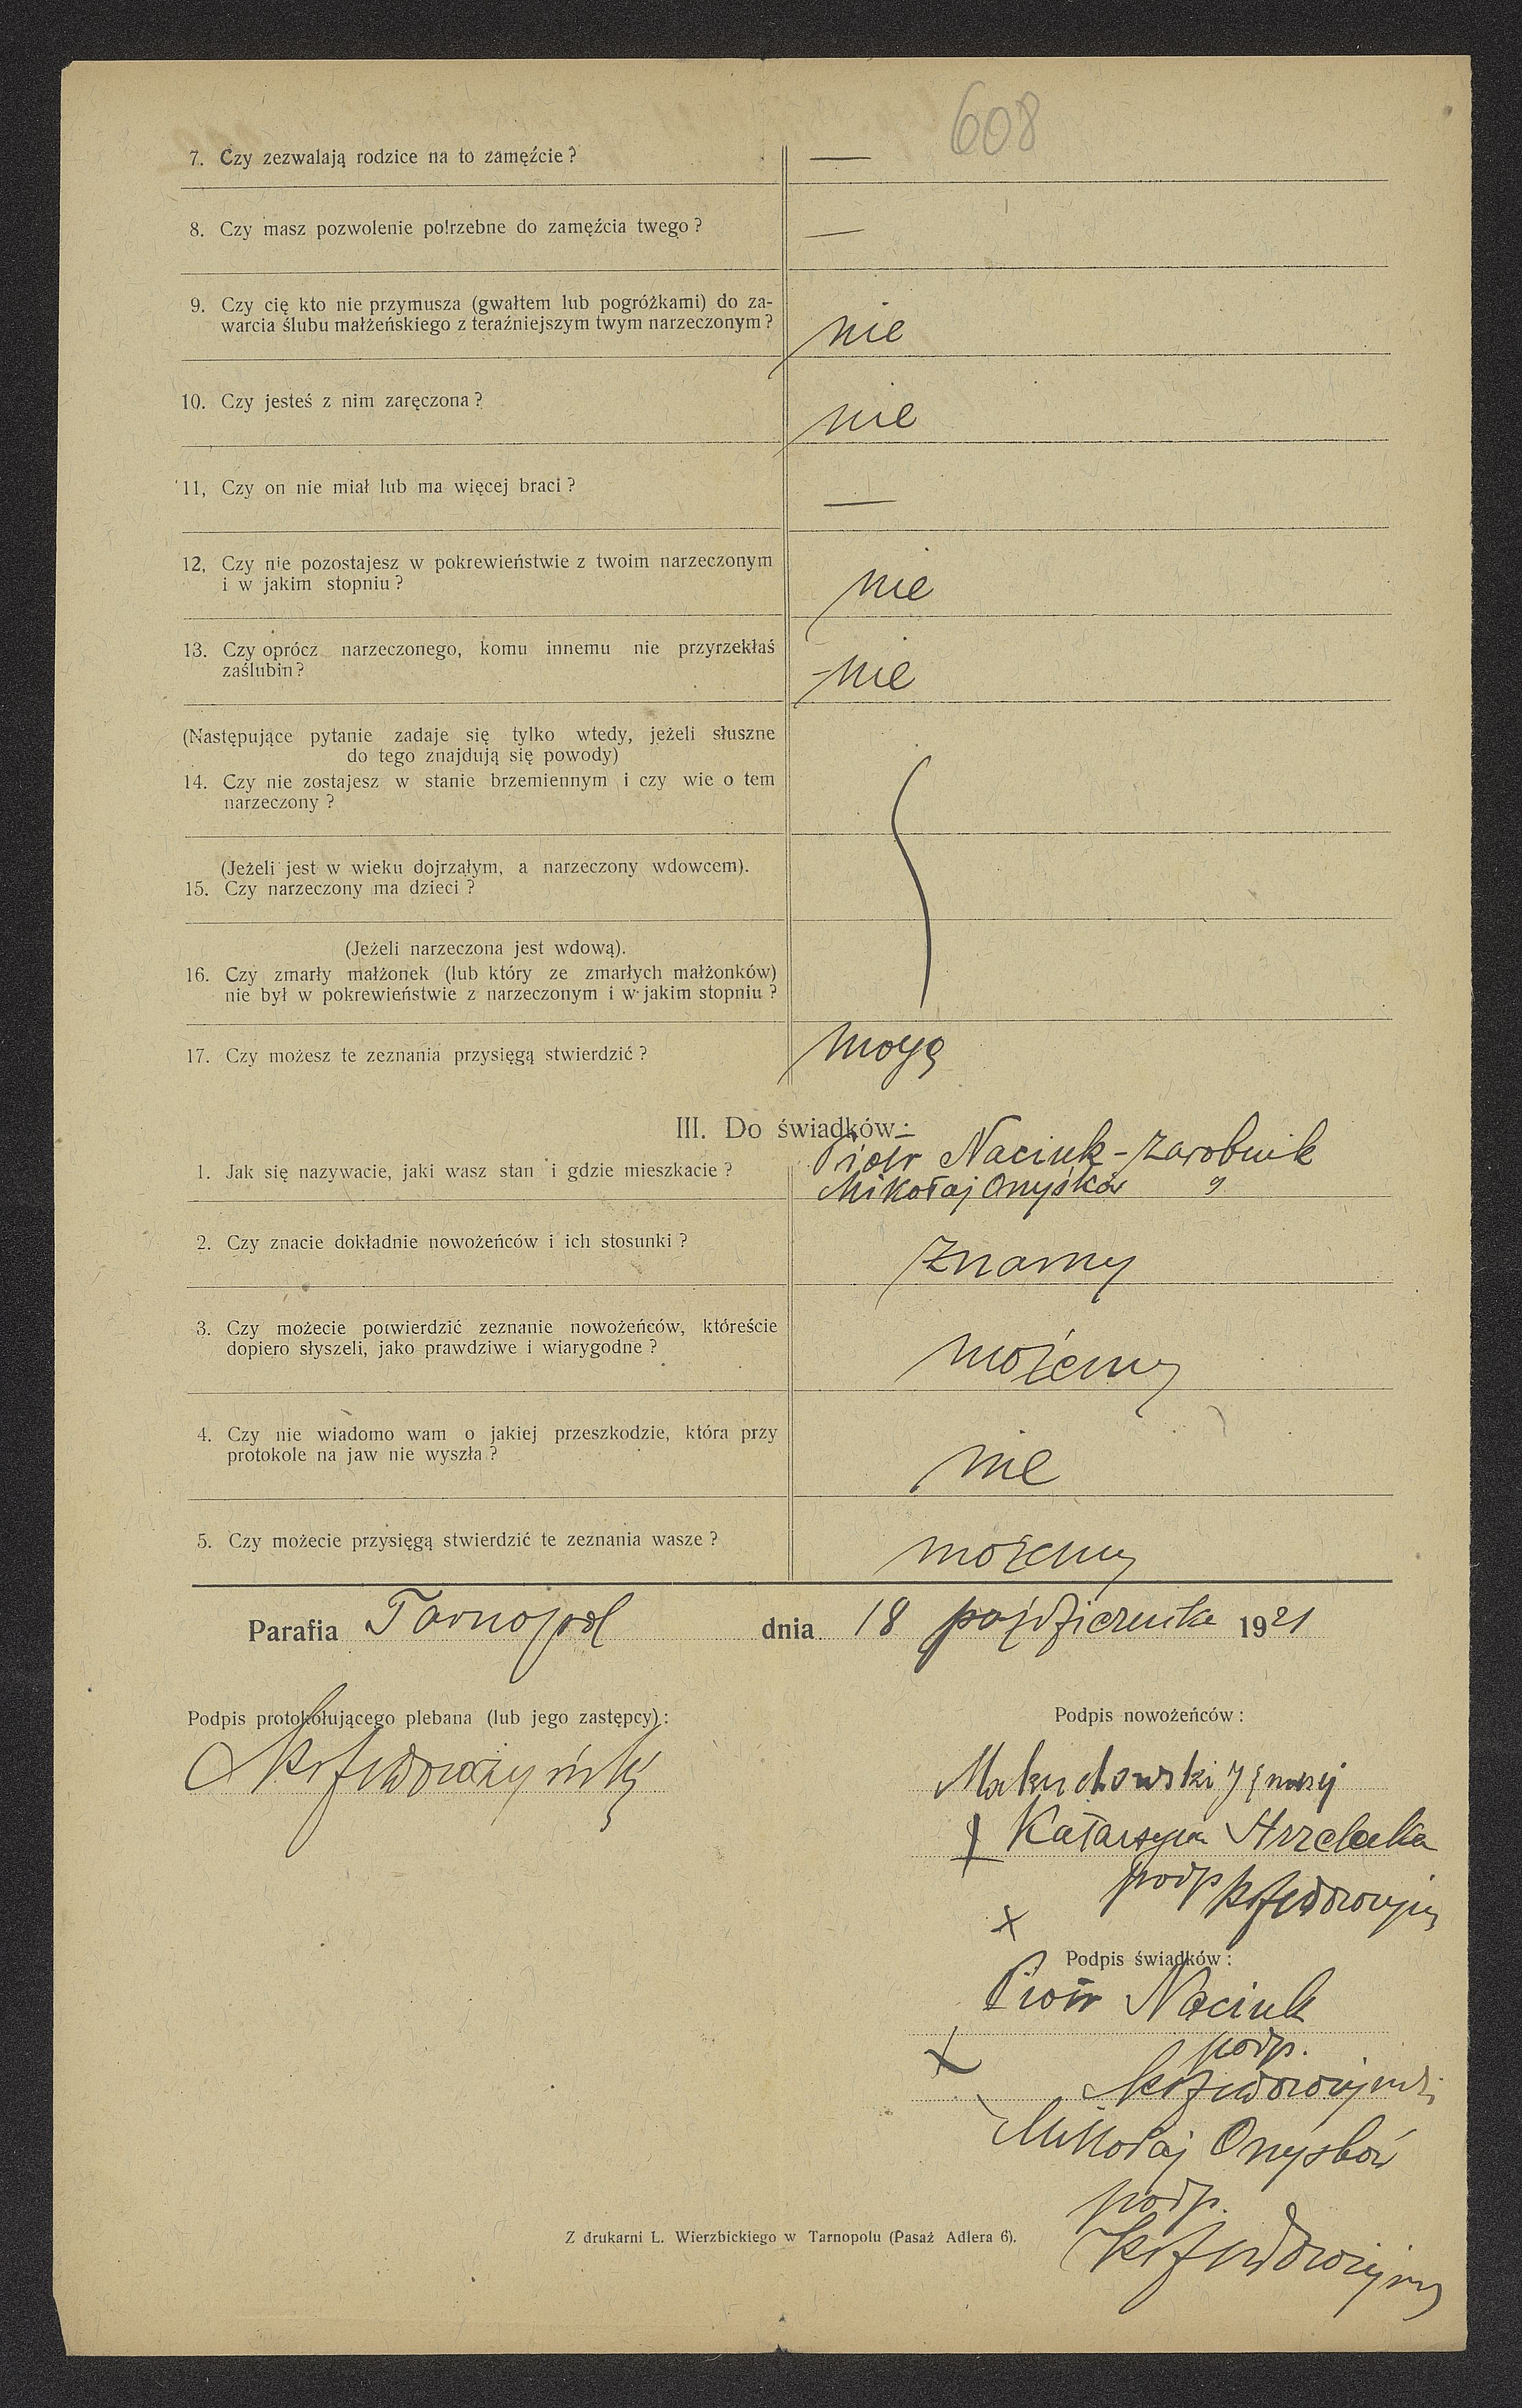 608
7. Czy zezwalają rodzice na to zamęźcie? —
8. Czy masz pozwolenie potrzebne do zamęźcia twego? —
9. Czy cię kto nie przymusza (gwałtem lub pogróżkami) do za-
warcia ślubu małżeńskiego z teraźniejszym twym narzeczonym? nie
10. Czy jesteś z nim zaręczona? nie
11, Czy on nie miał lub ma więcej braci? —
12, Czy nie pozostajesz w pokrewieństwie z twoim narzeczonym
i w jakim stopniu? nie
13. Czy oprócz narzeczonego, komu innemu nie przyrzekłaś
zaślubin? nie
(Następujące pytanie zadaje się tylko wtedy, jeżeli słuszne
do tego znajdują się powody)
14. Czy nie zostajesz w stanie brzemiennym i czy wie o tem
narzeczony?
(Jeżeli jest w wieku dojrzałym, a narzeczony wdowcem).
15. Czy narzeczony ma dzieci?
(Jeżeli narzeczona jest wdową).
16. Czy zmarły małżonek (lub który ze zmarłych małżonków)
nie był w pokrewieństwie z narzeczonym i w jakim stopniu?
17. Czy możesz te zeznania przysięgą stwierdzić? mogę
III. Do świadków:
1. Jak się nazywacie, jaki wasz stan i gdzie mieszkacie? Piotr Naciuk - zarobnik
Mikołaj Onyśków "
2. Czy znacie dokładnie nowożeńców i ich stosunki? znamy
3. Czy możecie potwierdzić zeznanie nowożeńców, któreście
dopiero słyszeli, jako prawdziwe i wiarygodne? możemy
4. Czy nie wiadomo wam o jakiej przeszkodzie, która przy
protokole na jaw nie wyszła? nie
5. Czy możecie przysięgą stwierdzić te zeznania wasze? możemy
Parafia Tarnopol dnia 18 października 1921
Podpis protokołującego plebana (lub jego zastępcy):
Podpis nowożeńców:
Makuchowski Ignacy
Katarzyna Strzelecka
podp
x
Podpis świadków:
Piotr Naciuk
podp.
x
Mikołaj Onyśków
podp.
Z drukarni L. Wierzbickiego w Tarnopolu (Pasaż Adlera 6).